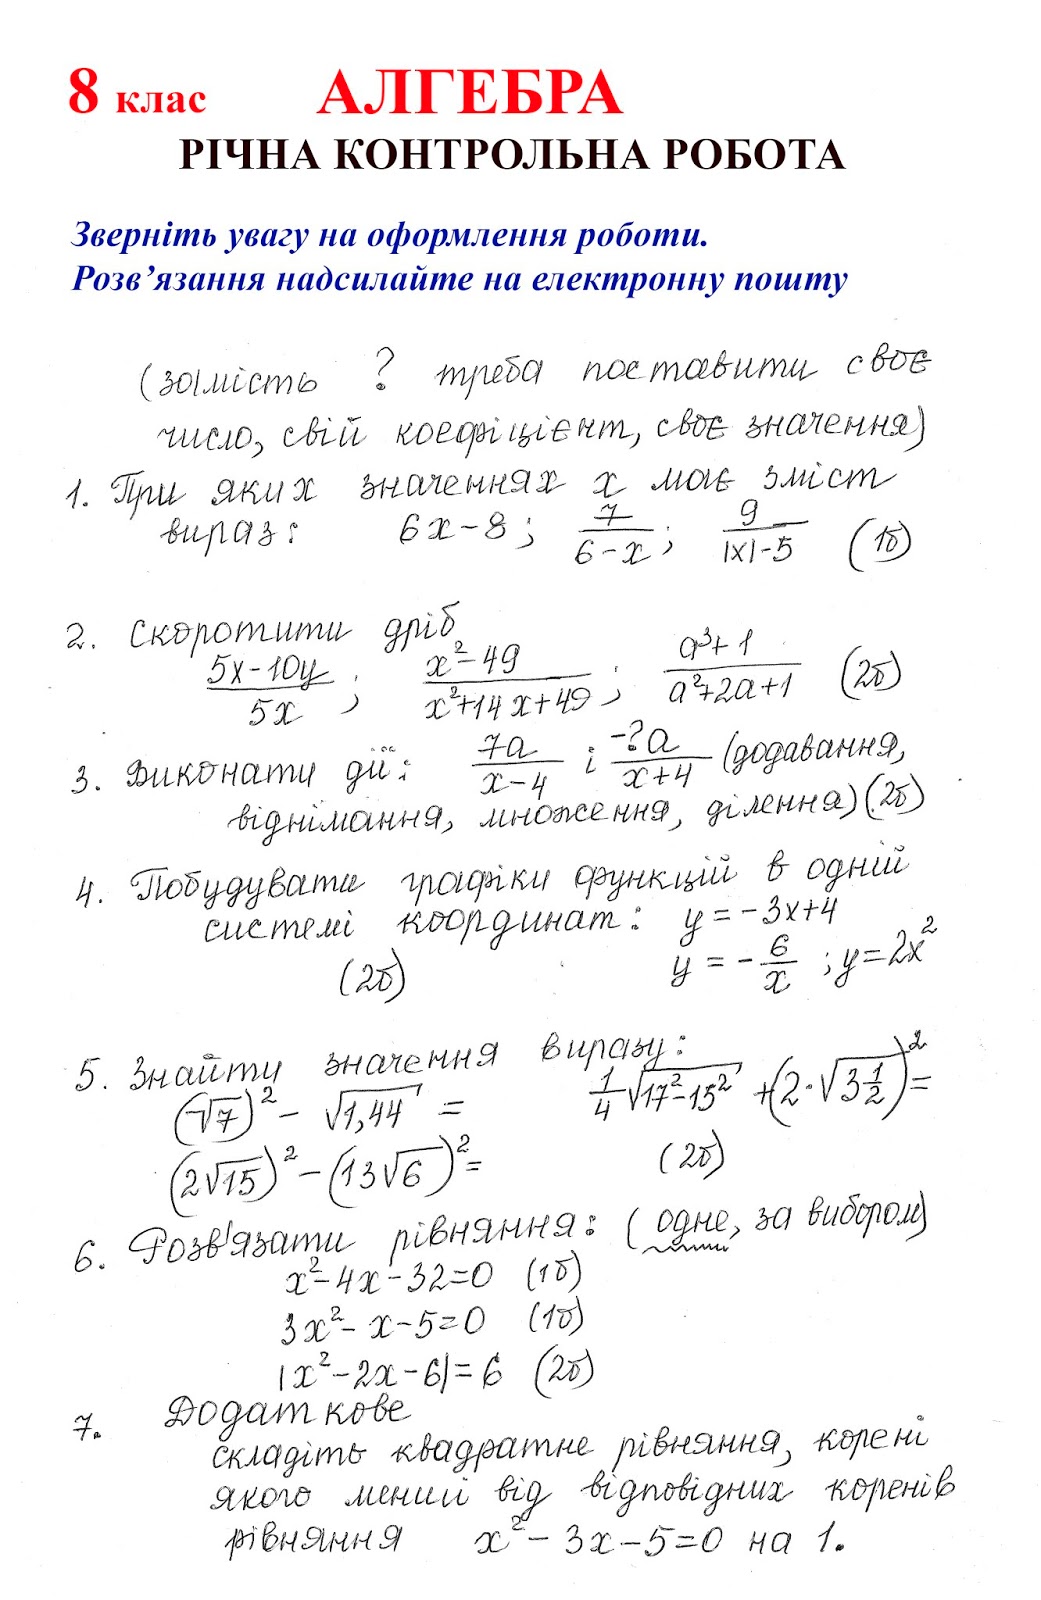 8 клас АЛГЕБРА
РІЧНА КОНТРОЛЬНА РОБОТА
Зверніть увагу на оформлення роботи.
Розв’язання надсилайте на електронну пошту
(замість ? треба поставити своє
число, свій коефіцієнт, своє значення)
1. При яких значеннях x має зміст
вираз: 6x-8; 7/(6-x); 9/(|x|-5) (1б)
2. Скоротити дріб
(5x-10y)/(5x); (x²-49)/(x²+14x+49); (a³+1)/(a²+2a+1) (2б)
3. Виконати дії: 7a/(x-4) і -?a/(x+4) (додавання,
віднімання, множення, ділення) (2б)
4. Побудувати графіки функцій в одній
системі координат: y = -3x+4
(2б) y = -6/x ; y=2x²
5. Знайти значення виразу:
(√7)² - √1,44 = 1/4 √(17²-15²) + (2·√(3 1/2))² =
(2√15)² - (13√6)² = (2б)
6. Розв'язати рівняння: (одне, за вибором)
x²-4x-32=0 (1б)
3x²-x-5=0 (1б)
|x²-2x-6|=6 (2б)
7. Додаткове
складіть квадратне рівняння, корені
якого менші від відповідних коренів
рівняння x²-3x-5=0 на 1.